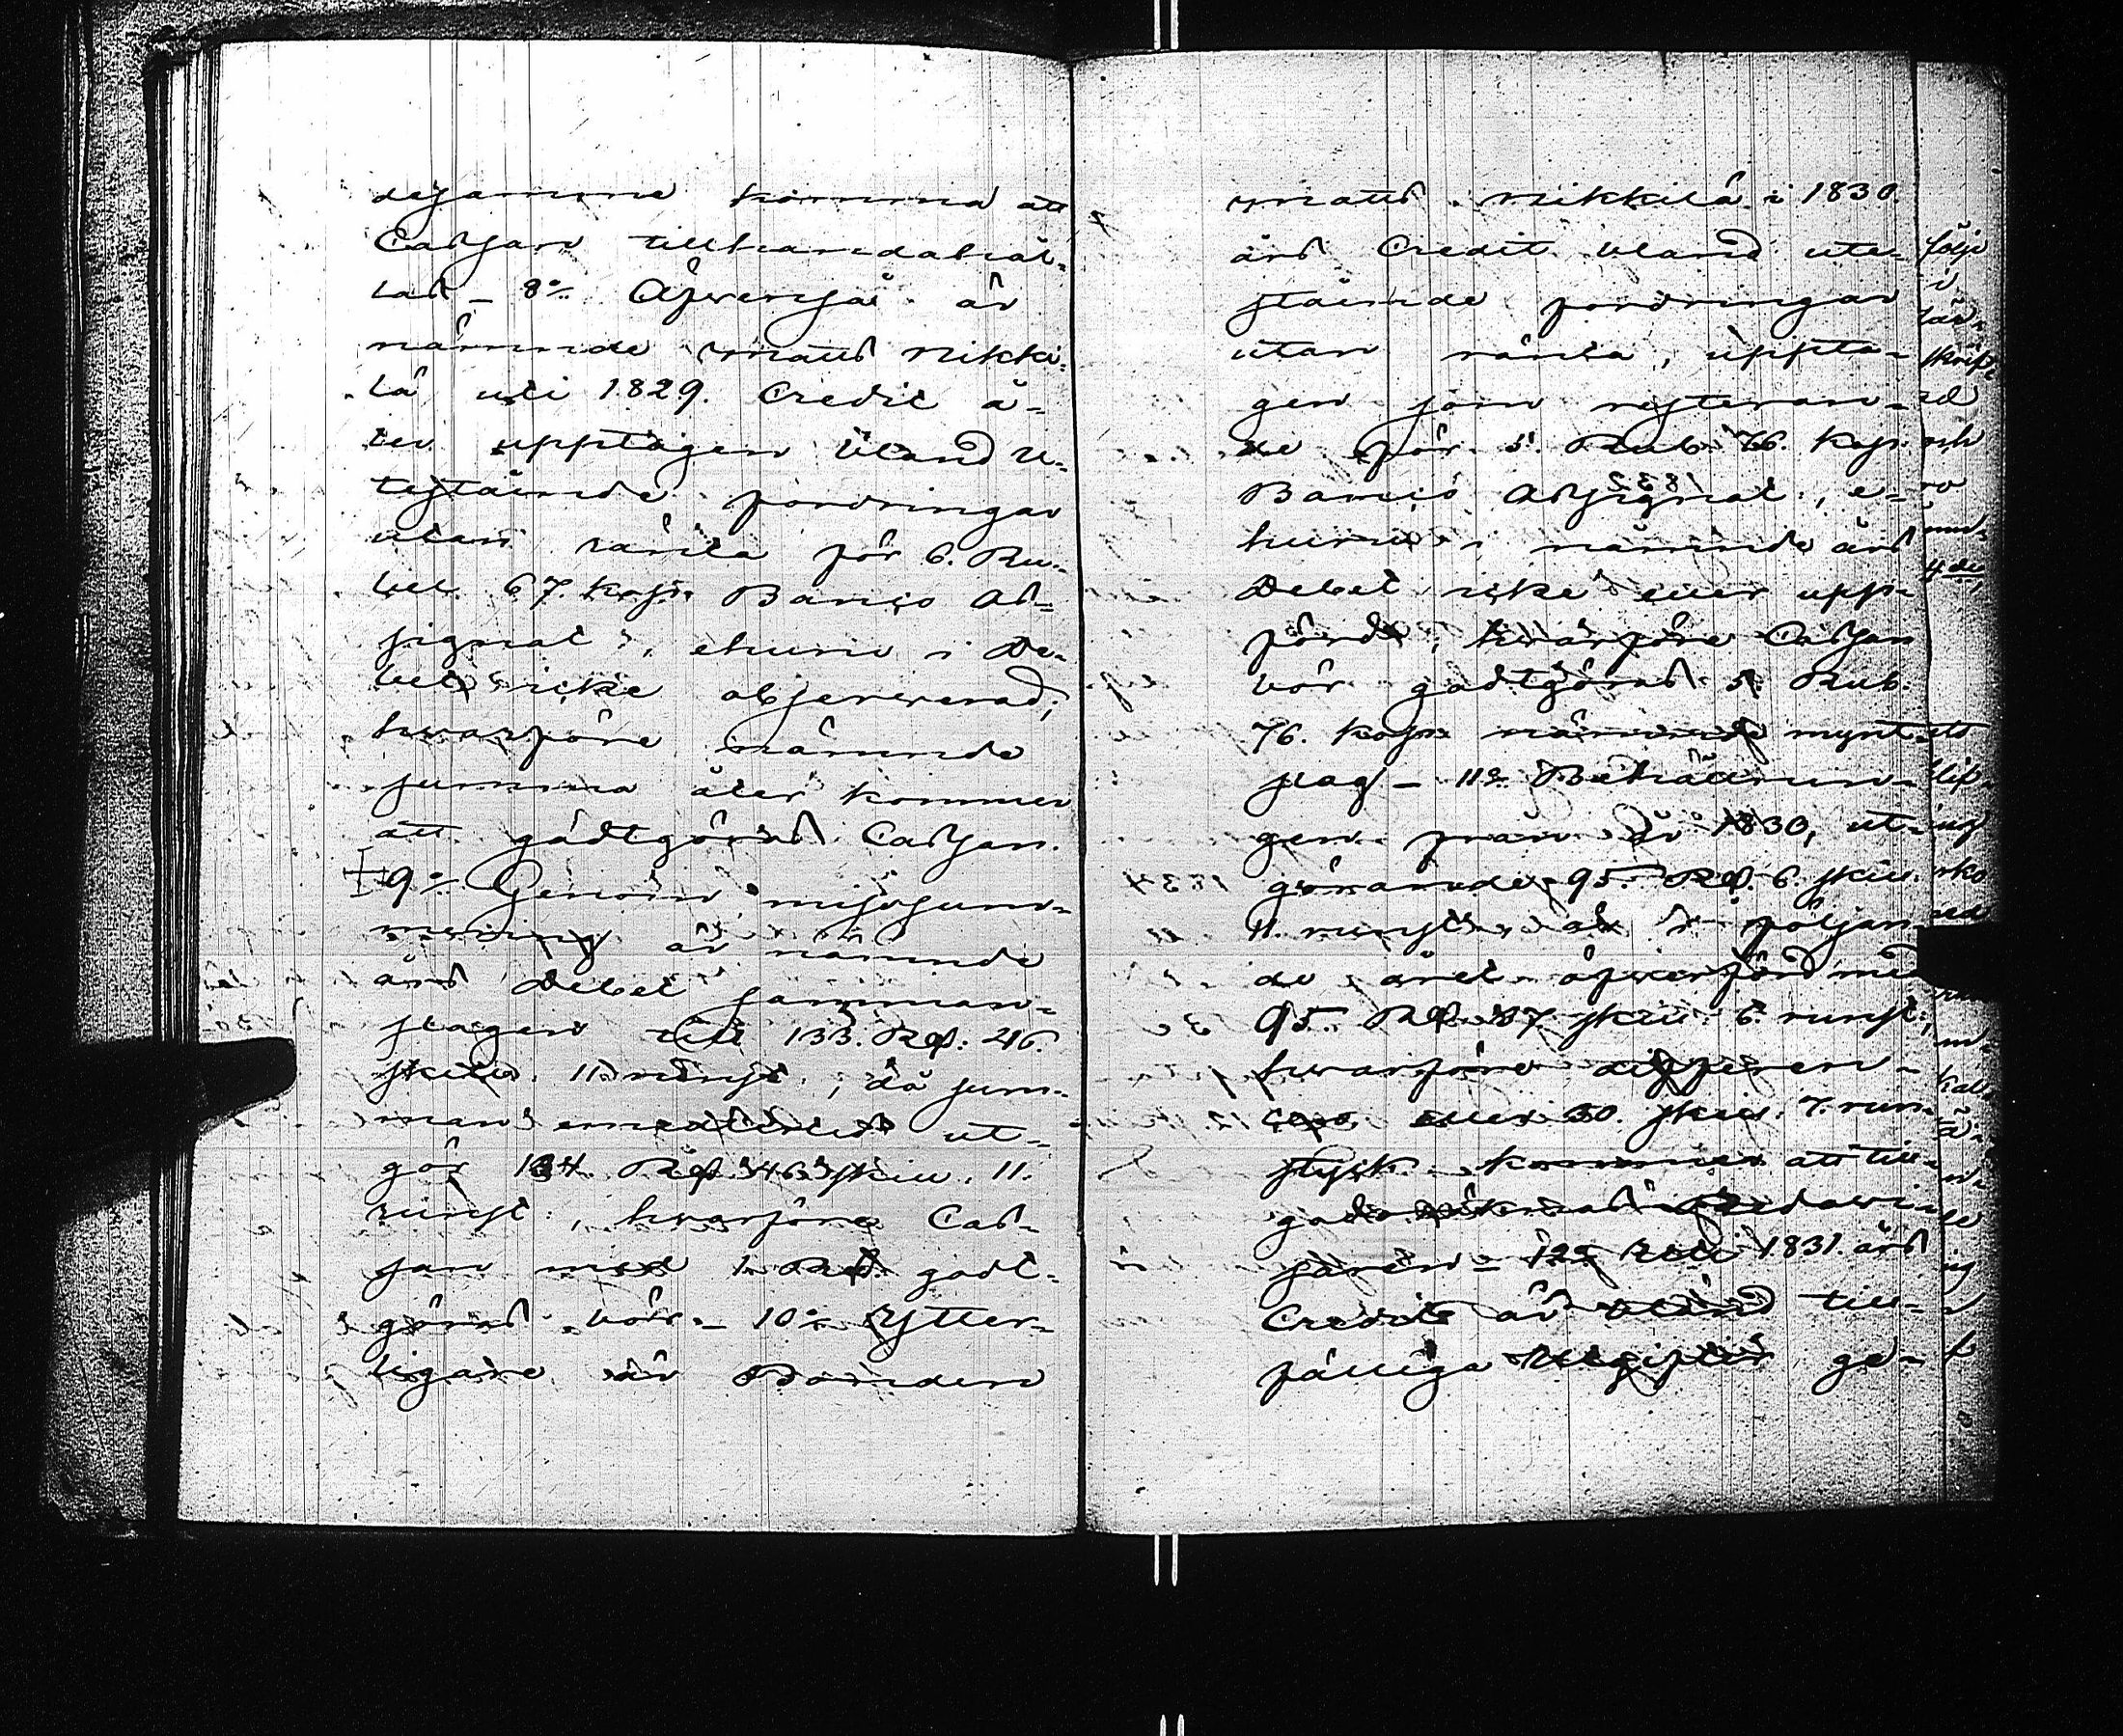 desamme komma att
Cassan tillhandahål-
las _ 8:o Äfvenså är
nämnde Matts Nikki-
lä uti 1829. Credit å-
ter upptagen bland u-
testående fordringar
utan ränta för 6. Ru-
bel 67. kop. Banco As-
signat:, ehuru i De-
bet icke observerad;
hvarföre nämnde
summa åter kommer
att godtgöras Cassan.
9:o Genom missum-
mering är nämnde
års Debet samman-
slagen till 133. Rd. 46.
skill. 11 runst:, då sum-
man emedlertid ut-
gör 134 Rd 46 skill. 11.
runst:, hvarföre Cas-
san med 1. Rd. godt-
göras bör. _ 10:o Ytter-
ligare är Bonden
Matts Nikkilä i 1830.
års Credit bland ute-
stående fordringar
utan ränta, uppta-
gen som resteran-
de för 5. Rub. 76. kop.
Banco Assignat:, e-
huru i nämnde års
Debet icke eller upp-
förd; hvarföre Cassan
bör godtgöras 5. Rub.
76. kop. nämnde mynt-
slag _ 11:o Behållnin-
gen från år 1830, ut-
görande 95. Rd. 6. skill.
11. runst: är i följan-
de året öfverförd med
95. Rd. 37. skill. 6. runst:,
hvarföre differen-
cen eller 30. skill. 7. run-
styck. kommer att till-
godoräknas Redovi-
saren _ 12:o Uti 1831. års
Credit är bland till-
fälliga Utgifter ge-
följe
i
och
4de